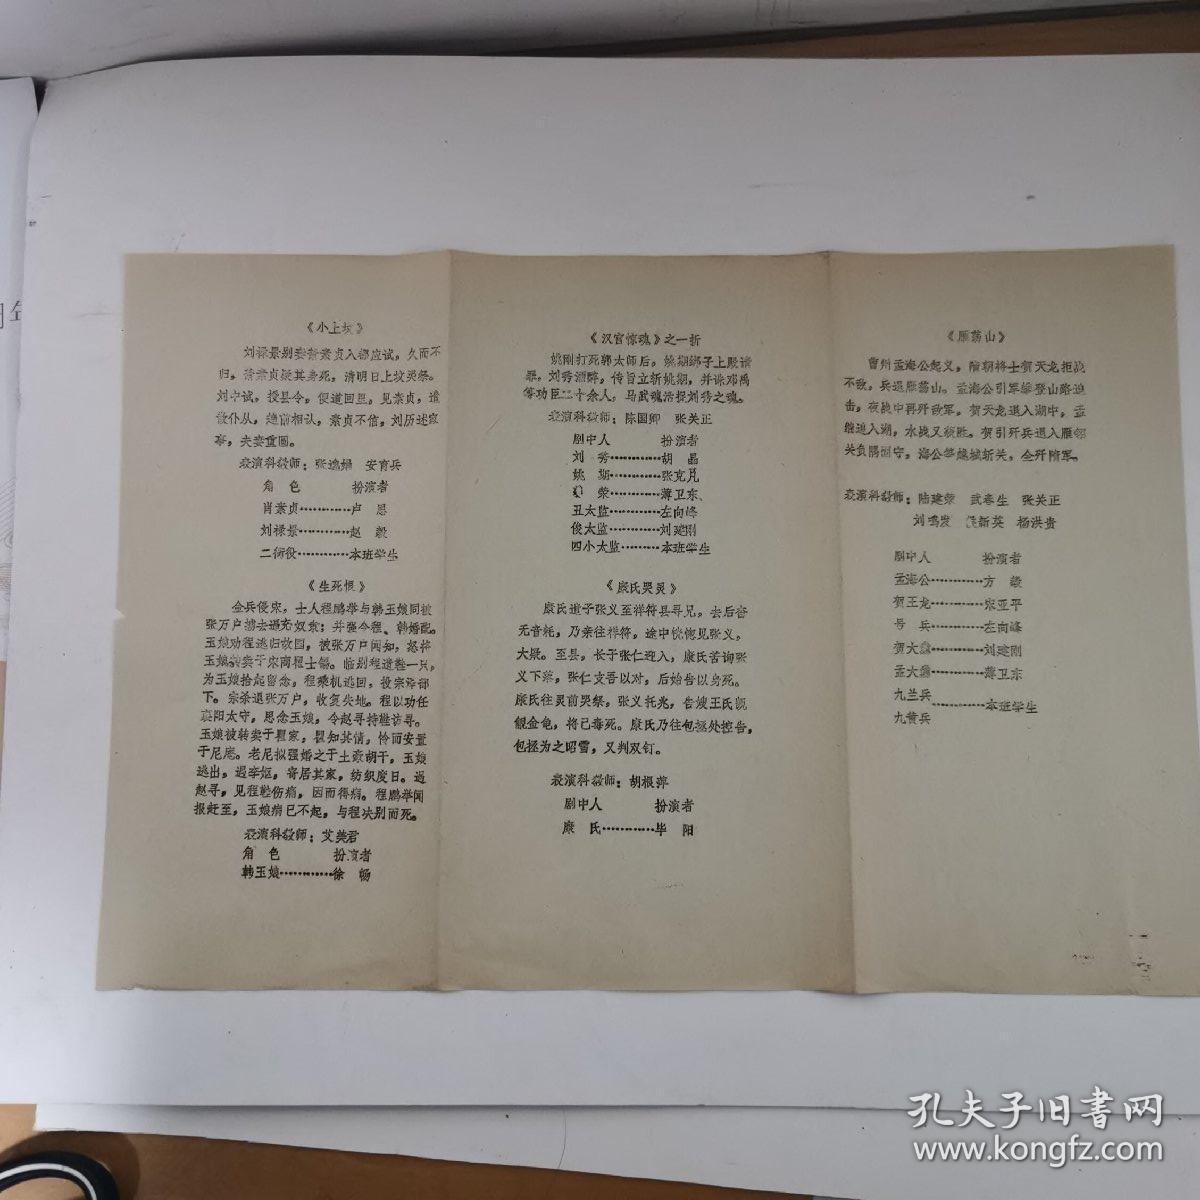 《小上坟》
刘禄景别妻萧素贞入都应试，久而不
归，萧素贞疑其身死，清明日上坟哭祭。
刘中试，授县令，便道回里，见素贞，遣
散仆从，趋前相认，素贞不信，刘历述家
事，夫妻重圆。
表演科教师：张逸娟 安育兵
角 色 扮演者
肖素贞…………卢 思
刘禄景…………赵 毅
二衙役…………本班学生
《生死恨》
金兵侵宋，士人程鹏举与韩玉娘同被
张万户掳去逼充奴隶；并强令程、韩婚配。
玉娘劝程逃归故国，被张万户闻知，怒将
玉娘转卖于宋商瞿士锡。临别程遗鞋一只，
为玉娘拾起留念，程乘机逃回，投宗泽部
下。宗杀退张万户，收复失地。程以功任
襄阳太守，思念玉娘，令赵寻持鞋访寻。
玉娘被转卖于瞿家，瞿知其情，怜而安置
于尼庵。老尼拟强婚之于土豪胡干，玉娘
逃出，遇李妪，寄居其家，纺织度日。遇
赵寻，见程鞋伤痛，因而得病。程鹏举闻
报赶至，玉娘病已不起，与程决别而死。
表演科教师：艾美君
角 色 扮演者
韩玉娘…………徐 畅
《汉宫惊魂》之一折
姚刚打死郭太师后，姚期绑子上殿请
罪，刘秀酒醉，传旨立斩姚期，并诛邓禹
等功臣二十余人，马武魂活捉刘秀之魂。
表演科教师：陈国卿 张关正
剧中人 扮演者
刘 秀…………胡 晶
姚 期…………张克
荣…………薄卫东、
丑太监…………左向峰
俊太监…………刘建刚
四小太监………本班学生
《康氏哭灵》
康氏遣子张义至祥符县寻兄，去后杳
无音耗，乃亲往祥符，途中恍惚见张义，
大疑。至县，长子张仁迎入，康氏苦询张
义下落，张仁支吾以对，后始告以身死。
康氏往灵前哭祭，张义托兆，告嫂王氏觊
觎金龟，将已毒死。康氏乃往包拯处控告，
包拯为之昭雪，又判双钉。
表演科教师：胡根萍
剧中人 扮演者
康 氏…………毕 阳
《雁荡山》
曹州孟海公起义，隋朝将士贺天龙拒战
不敌，兵退雁荡山。孟海公引军攀登山路追
击，夜战中再歼敌军，贺天龙退入湖中，孟
继追入湖，水战又获胜。贺引歼兵退入雁翎
关负隅固守，海公等越城斩关，全歼隋军。
表演科教师：陆建荣 武春生 张关正
刘鸣发 侯新英 杨洪贵
剧中人 扮演者
孟海公…………方 毅
贺王龙…………宋亚平
号 兵…………左向峰
贺大纛…………刘建刚
孟大纛…………薄卫东
九兰兵
…………本班学生
九黄兵
孔夫子旧书网
www.kongfz.com